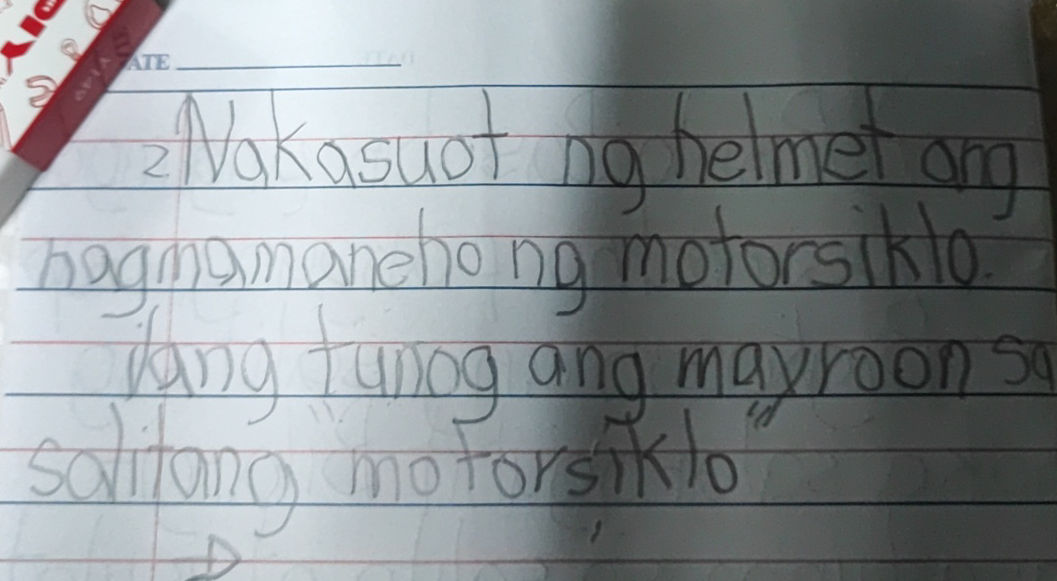 ATE
2 Nakasuot ng helmet ang
nagmamaneho ng motorsiklo.
ilang tunog ang mayroon sa
salitang "motorsiklo"